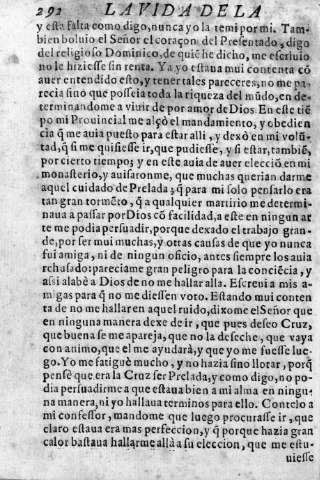 292 LA VIDA DE LA
y esta falta como digo, nunca yo la temi por mi. Tam-
bien boluio el Señor el coraçon del Presentado, digo
del religioso Dominico, de quiẽ he dicho, me escriuio
no le hiziesse sin renta. Ya yo estaua mui contenta cõ
auer entendido esto, y tener tales pareceres, no me pa-
recia sino que posseia toda la riqueza del mũdo, en de-
terminandome a viuir de por amor de Dios. En este tiẽ
po mi Prouincial me alçò el mandamiento, y obedien
cia q̃ me auia puesto para estar alli, y dexò en mi volũ-
tad, q̃ si me quisiesse ir, que pudiesse, y si estar, tambiẽ,
por cierto tiempo; y en este auia de auer elecciõ en mi
monasterio, y auisaronme, que muchas querian darme
aquel cuidado de Prelada; q̃ para mi solo pensarlo era
tan gran tormẽto, q̃ a qualquier martirio me determi-
naua a passar por Dios cõ facilidad, a este en ningun ar
te me podia persuadir, porque dexado el trabajo gran-
de, por ser mui muchas, y otras causas de que yo nunca
fui amiga, ni de ningun oficio, antes siempre los auia
rehusado: pareciame gran peligro para la conciẽcia, y
assi alabè a Dios de no me hallar alla. Escreui a mis a-
migas para q̃ no me diessen voto. Estando mui conten
ta de no me hallar en aquel ruido, dixome el Señor que
en ninguna manera dexe de ir, que pues deseo Cruz,
que buena se me apareja, que no la deseche, que vaya
con animo, que el me ayudarà, y que me fuesse lue-
go. Yo me fatiguè mucho, y no hazia sino llorar, porq̃
pensè que era la Cruz ser Prelada, y como digo, no po-
dia persuadirme a que estaua bien a mi alma en ningu-
na manera, ni yo hallaua terminos para ello. Contelo a
mi confessor, mandome que luego procurasse ir, que
claro estaua era mas perfeccion, y q̃ porque hazia gran
calor bastaua hallarme allà a su eleccion, que me estu-
uiesse